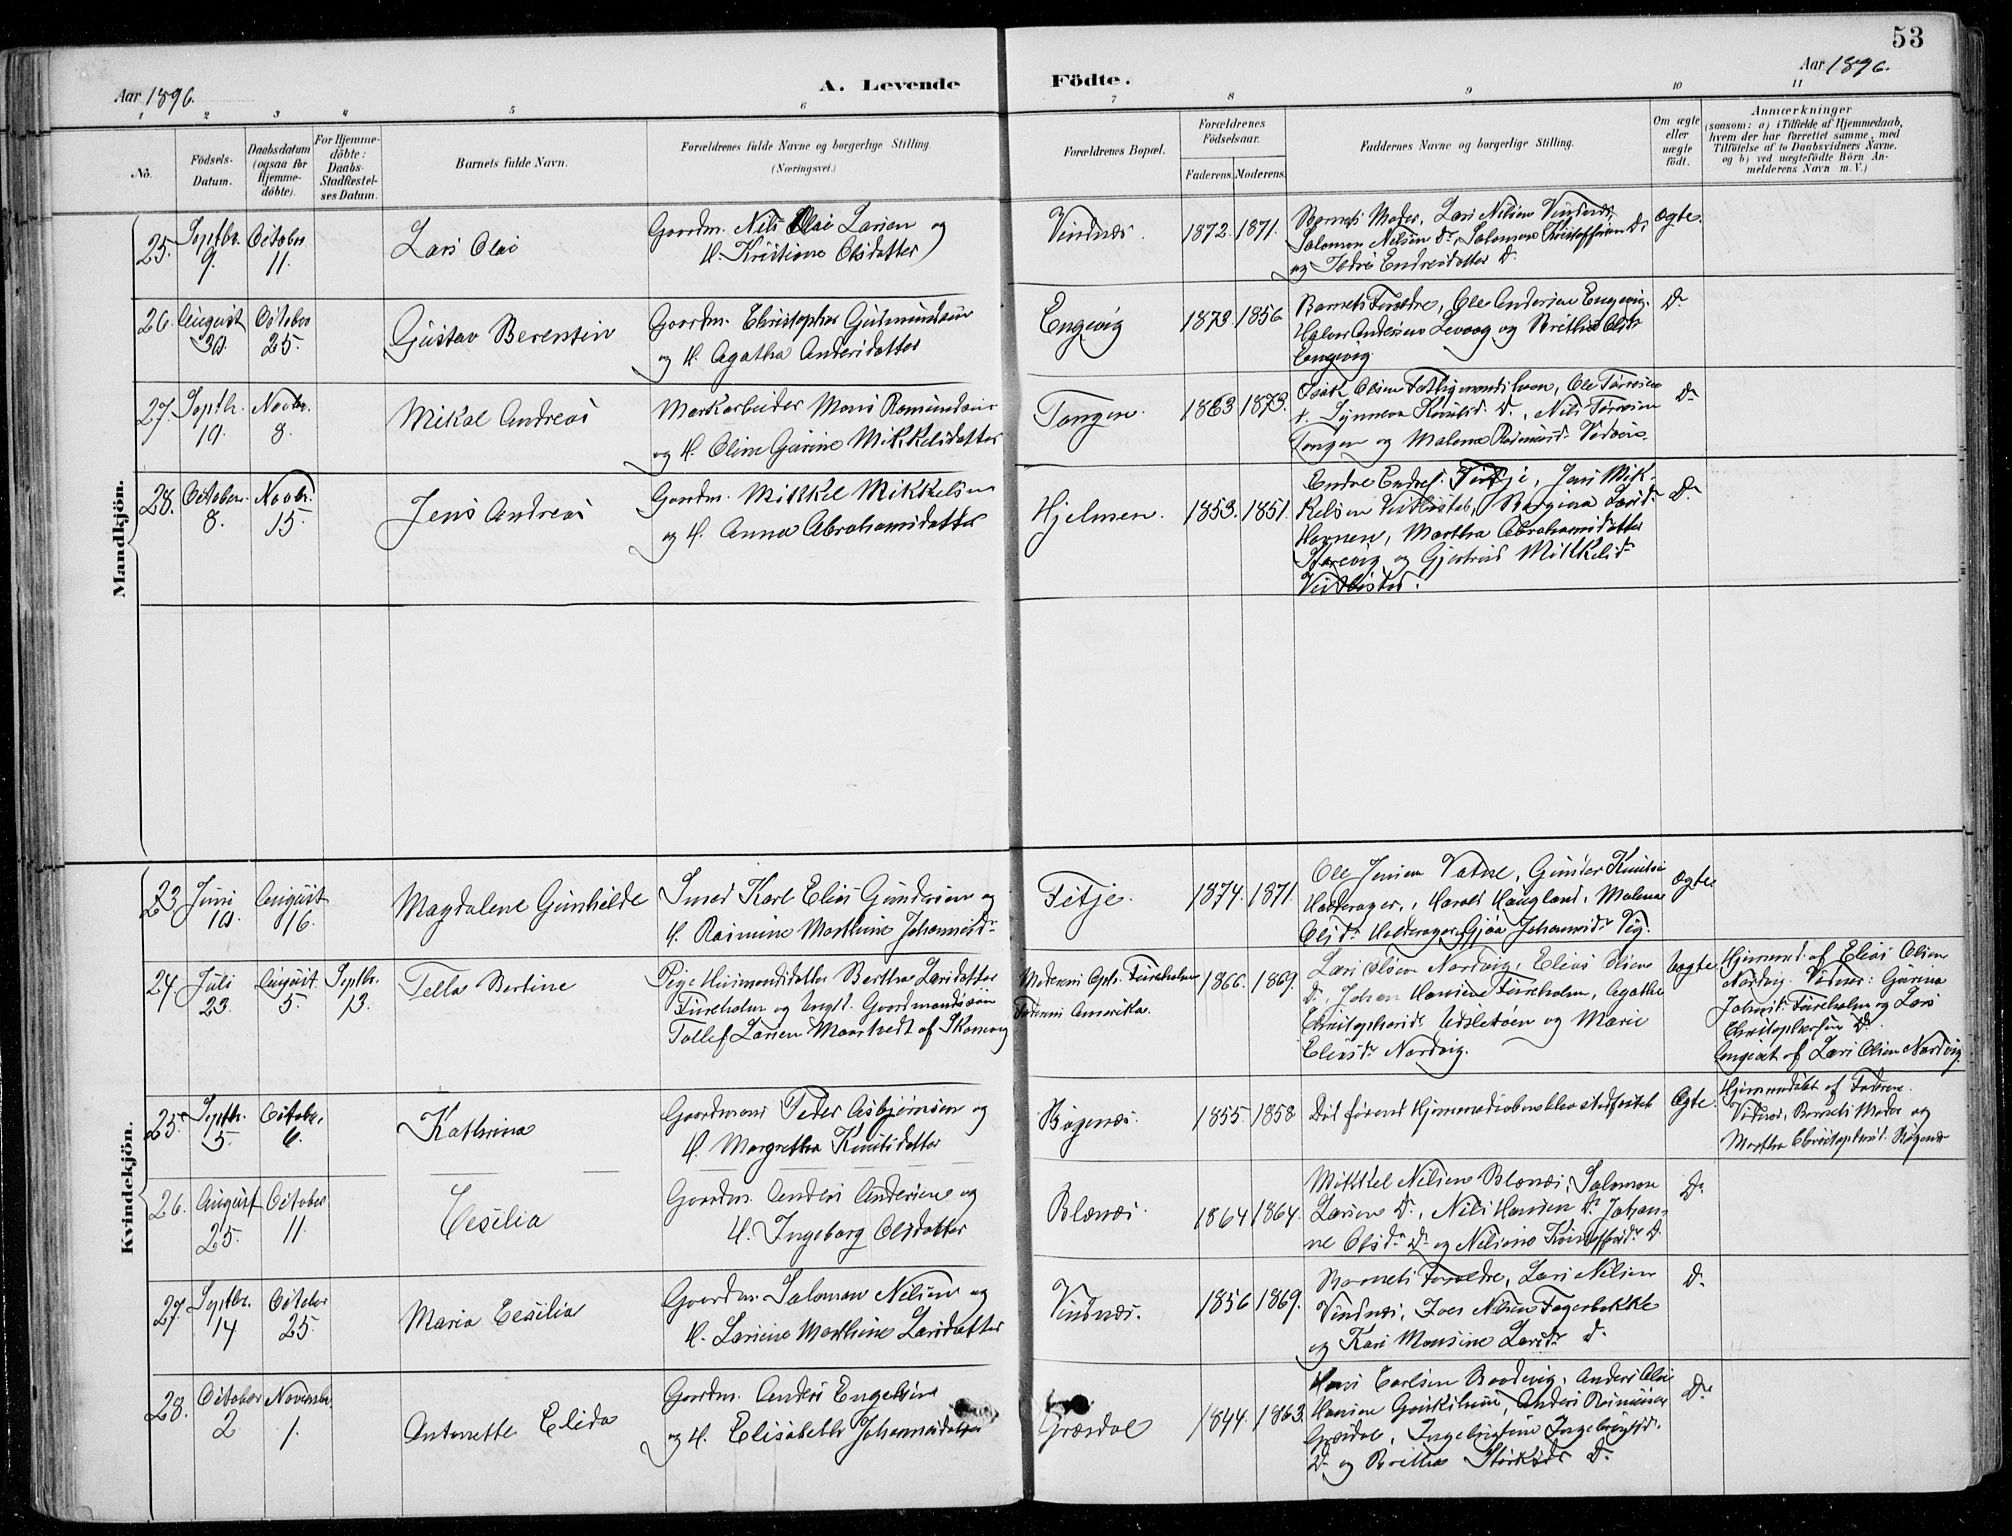 53
Aar 1896.
A. Levende
Födte.
Aar 1896.
1 2 3 4 5 6 7 8 9 10 11
No.
Födsels-
Datum.
Daabsdatum
(ogsaa for
Hjemme-
döbte).
For Hjemme-
döbte:
Daabs-
Stadfæstel-
ses Datum.
Barnets fulde Navn.
Forældrenes fulde Navne og borgerlige Stilling.
(Næringsvei.)
Forældrenes Bopæl.
Forældrenes
Födselsaar.
Faderens. Moderens.
Faddernes Navne og borgerlige Stilling.
Om ægte
eller
uægte
födt.
Anmærkninger
(saasom: a) i Tilfælde af Hjemmedaab,
hvem der har forrettet samme, med
Tilföielse af to Daabsvidners Navne.
og b) ved uægtefödte Börn An-
melderens Navn m. V.)
Mandkjön.
25. Septbr. 9. October 11.
Lars Olai
Gaardm. Nils Olai Larsen og
H. Kristiane Olsdatter
Vindnæs. 1872. 1871.
Barnets Moder, Lars Nilsen Vindnæs,
Salomon Nilsen Do, Salomon Kristoffersen Do
og Endresdatter Do
ægte.
26. August 30. October 25.
Gustav Berentin
Gaardm. Christopher Gudmundsen
og H. Agatha Andersdatter
Engevig 1873. 1856
Barnets Forældre, Ole Andersen Engevig.
Halvor Andersen Levaag og Beritha Olsdr
Engevig.
Do
27. Septbr. 19. Novbr. 8.
Mikal Andreas
Markarbeider Mons Rasmundsen
og H. Oline Gurine Mikkelsdatter
Tangen. 1863 1873.
Isak Olsen Fattigmandshavn, Ole
H. Synneva Knutsd. Do, Nils
Tangen og Malena
Do
28. October 8. Novbr. 15.
Jens Andreas
Gaardm. Mikkel Mikkelsen
og H. Anna Abrahamsdatter
Hjelmen. 1853. 1851.
Endre Endres. Fitje, Jens Mik-
kelsen Bergina Larsdr
Havnen, Martha Abrahamsdatter
Storevig og Gjertrud Mikkelsdr
Do
Kvindekjön.
23 Juni 10. August 16.
Magdalene Gunhilde
Smed Karl Elias Gundersen og
H. Rasmine Marthine Johannesdr
Fitje. 1874. 1871.
Ole Jensen Vatne, Gunder Knutsen
Halderager, Harald Haugland, Malena
Olsdr Halderager, Gjøa Johannesdr Vig.
ægte
24. Juli 23. August 5. Septbr. 13.
Tella Bertine
Pige Husmandsdatter Bertha Larsdatter
Fureholm og Ungk. Gaardmandssøn
Tollef Larsen Maartvedt af Skonevig
Moderens Opl. Fureholm
Faderens Amerika.
1866. 1869.
Lars Olsen Nordvig, Elias Olsen
Do, Johan Hansen Fureholm, Agatha
Christophersdr og Marie
Eliasdr Nordvig.
Uægte
Hjemmed. af Elias Olsen
Nordvig. Vidner: Gurina
Johnsd. Fureholm og Lars
Christophersen Do.
Angivet af Lars Olsen Nordvig.
25. Septbr. 5. October 6.
Kathrina
Gaardmand Peder Asbjørnsen og
H. Margretha Knutsdatter
Bøgenæs. 1855. 1858
Død førend Hjemmedaaben blev stadfæstet
Ægte.
Hjemmedøbt af Faderen.
Vidner, Barnets Moder og
Martha Christophersd. Bøgenæs
26. August 25. October 11.
Cesilia
Gaardm. Anders Andersen og
H. Ingeborg Olsdatter
Blænæs. 1864 1864.
Mikkel Nilsen Blænæs, Salomon
Larsen Do, Nils Hansen Do, Johan-
ne Olsdr Do og Nilsine Kristoffersdr Do.
Do
27. Septbr. 14 October 25.
Maria Cesilia
Gaardm. Salomon Nilsen og
H. Larsine Marthine Larsdatter
Vindnæs. 1856 1869.
Barnets Forældre, Lars Nilsen
Vindnæs, Iver Nilsen Fagerbakke
og Kari Monsine Larsdr Do.
Do
28. October 2 November 1.
Antonette Elida
Gaardm. Anders Engelsen
og H. Elisabeth Johannesdatter
Græsdal 1844. 1863.
Hans Carlsen Anders Olai
Hansen Anders Rasmussen
Græsdal, Ingebrigtsen Ingebregtsd.
Do og Britha Do
Do